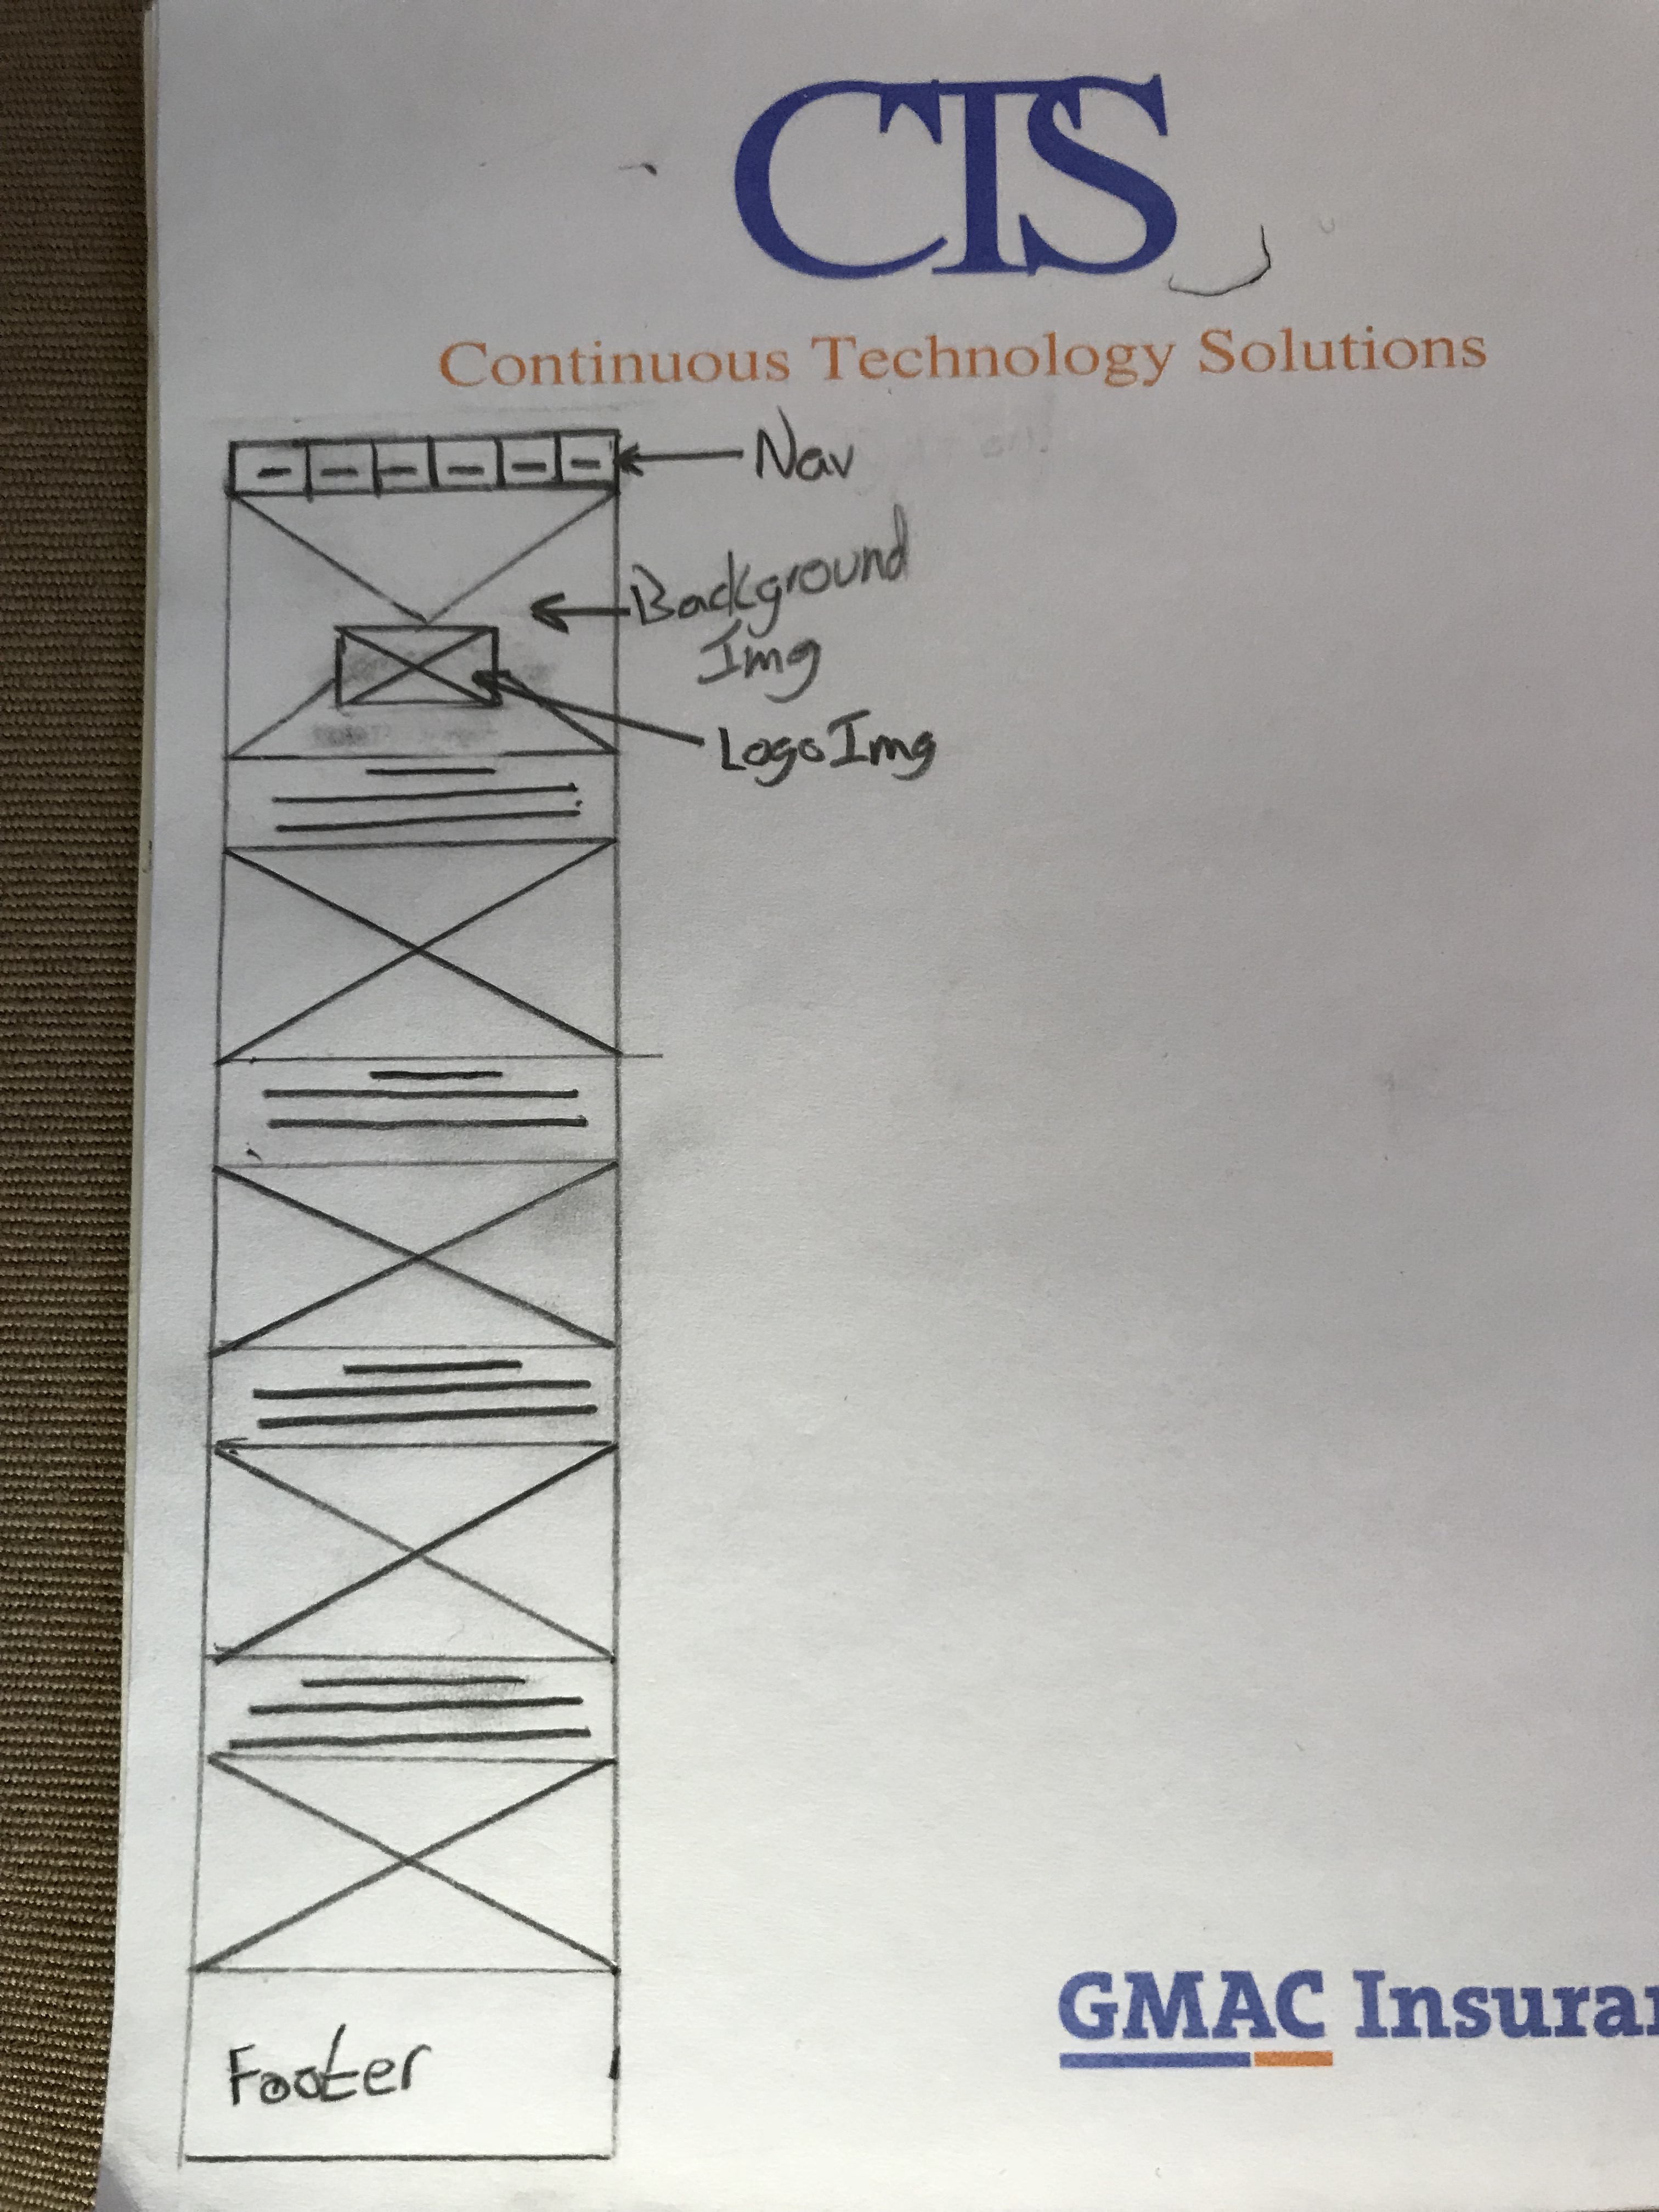 CTS
Continuous Technology Solutions
Nav
Background
Img
Logo Img
Footer
GMAC Insuran